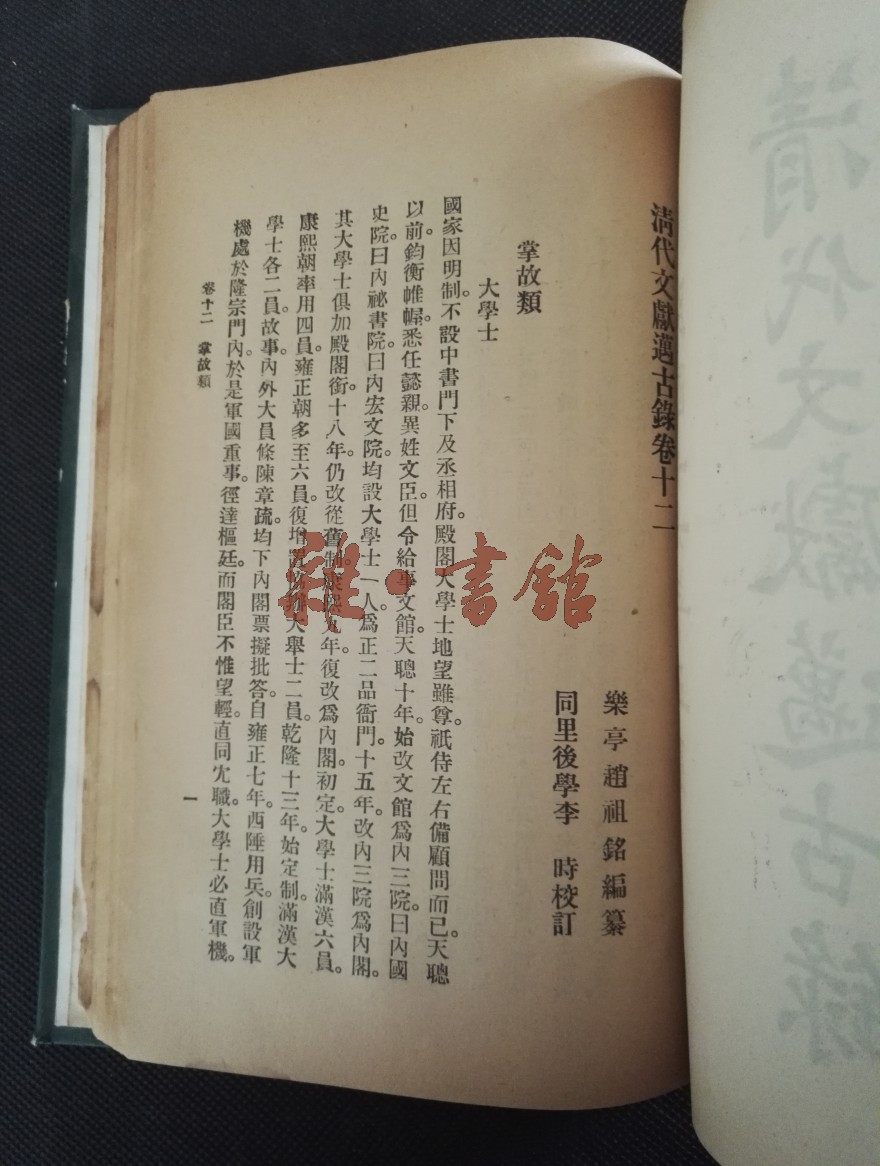 清代文獻邁古錄卷十二
樂亭趙祖銘編纂
同里後學李 時校訂
掌故類
大學士
國家因明制。不設中書門下及丞相府。殿閣大學士地望雖尊。祇侍左右備顧問而已。天聰
以前。鈞衡帷幄。悉任懿親。異姓文臣。但令給事文館。天聰十年。始改文館爲內三院。曰內國
史院。曰內祕書院。曰內宏文院。均設大學士一人。爲正二品衙門。十五年。改內三院爲內閣。
其大學士俱加殿閣銜。十八年。仍改從舊制。康熙九年。復改爲內閣。初定大學士滿漢六員。
康熙朝率用四員。雍正朝多至六員。復增置協辦大學士二員。乾隆十三年。始定制。滿漢大
學士各二員。故事。內外大員條陳章疏。均下內閣票擬批答。自雍正七年。西陲用兵。創設軍
機處於隆宗門內。於是軍國重事。徑達樞廷。而閣臣不惟望輕。直同宂職。大學士必直軍機。
卷十二 掌故類
一
雜·書館
清代文獻邁古錄